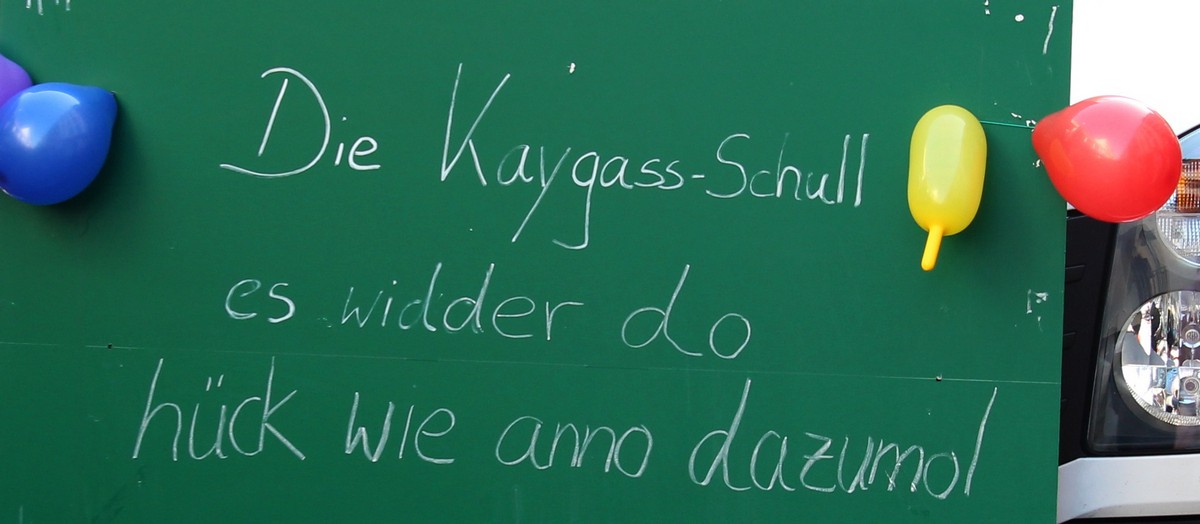 Die Kaygass-Schull
es widder do
hück wie anno dazumol